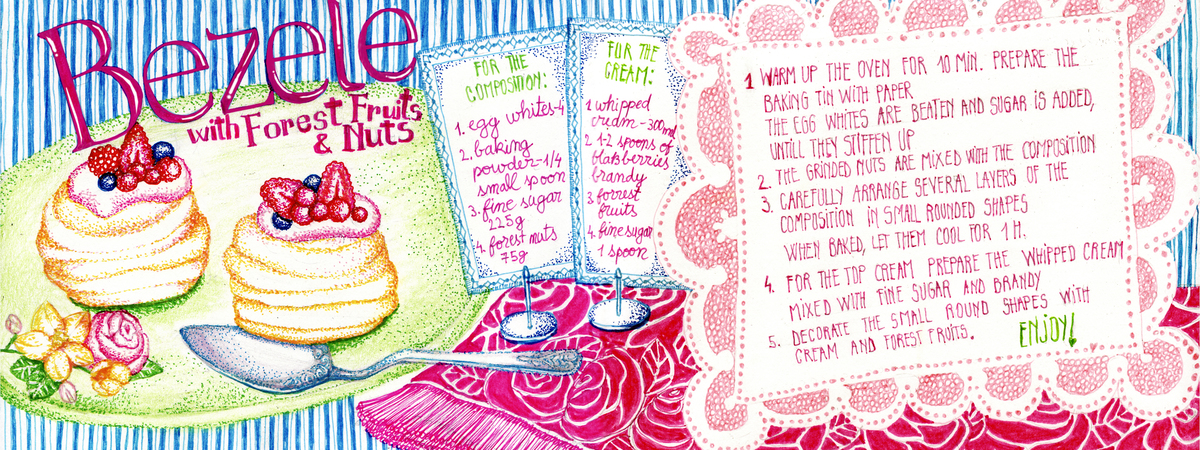 Bezele
with Forest Fruits
& Nuts
FOR THE
COMPOSITION:
1. egg whites-4
2. baking
powder-1/4
small spoon
3. fine sugar
225g
4. forest nuts
75g
FOR THE
CREAM:
1 whipped
cream-300ml
2 1-2 spoons of
blabberries
brandy
3 forrest
fruits
4. fine sugar
1 spoon
1 WARM UP THE OVEN FOR 10 MIN. PREPARE THE
BAKING TIN WITH PAPER
THE EGG WHITES ARE BEATEN AND SUGAR IS ADDED,
UNTILL THEY STIFFEN UP
2. THE GRINDED NUTS ARE MIXED WITH THE COMPOSITION
3. CAREFULLY ARRANGE SEVERAL LAYERS OF THE
COMPOSITION IN SMALL ROUNDED SHAPES
WHEN BAKED, LET THEM COOL FOR 1 H.
4. FOR THE TOP CREAM PREPARE THE WHIPPED CREAM
MIXED WITH FINE SUGAR AND BRANDY
5. DECORATE THE SMALL ROUND SHAPES WITH
CREAM AND FOREST FRUITS.
ENJOY!